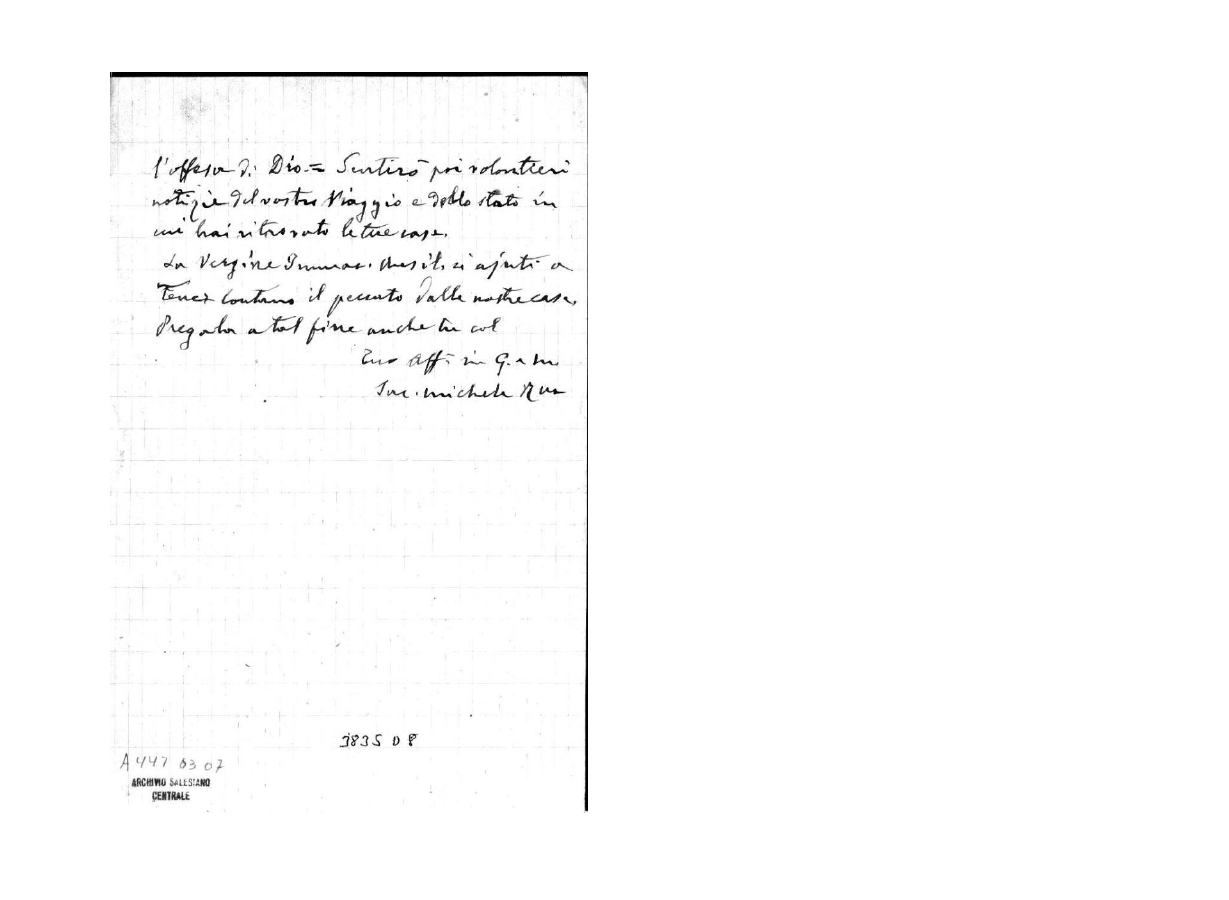 l'offesa di Dio = Sentirò poi volontieri
notizie del vostro Viaggio e dello stato in
cui hai ritrovato le tue case.
La Vergine Immac. Ausil. ci ajuti a
Tener lontano il peccato dalle nostre case.
Pregala a tal fine anche tu col
Tuo Aff. in G. e M.
Sac. Michele Rua
3835 D 8
A 447 03 07
ARCHIVIO SALESIANO
CENTRALE